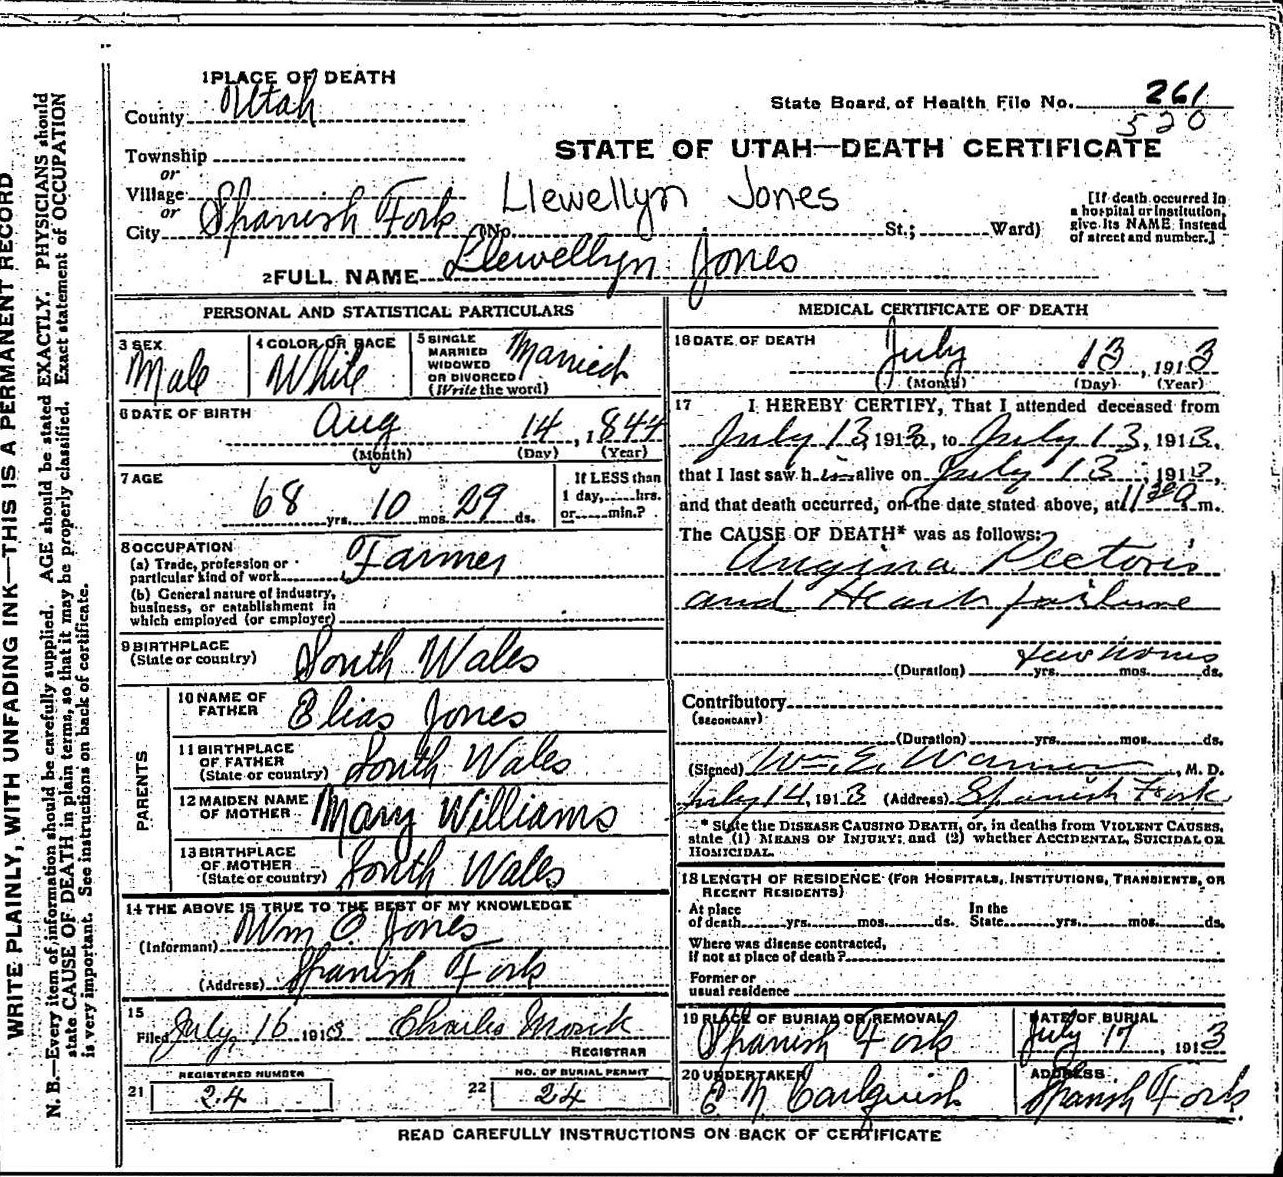 1 PLACE OF DEATH
County Utah
State Board of Health File No. 261
520
Township
or
Village
or
City Spanish Fork
STATE OF UTAH—DEATH CERTIFICATE
Llewellyn Jones
(No. St.; Ward)
[If death occurred in
a hospital or institution,
give its NAME instead
of street and number.]
2 FULL NAME Llewellyn Jones
PERSONAL AND STATISTICAL PARTICULARS
3 SEX Male
4 COLOR OR RACE White
5 SINGLE
MARRIED
WIDOWED
OR DIVORCED
(Write the word) Married
6 DATE OF BIRTH
Aug 14, 1844
(Month) (Day) (Year)
7 AGE
68 yrs. 10 mos. 29 ds.
If LESS than
1 day, hrs.
or min.?
8 OCCUPATION
(a) Trade, profession or
particular kind of work Farmer
(b) General nature of industry,
business, or establishment in
which employed (or employer)
9 BIRTHPLACE
(State or country) South Wales
PARENTS
10 NAME OF
FATHER Elias Jones
11 BIRTHPLACE
OF FATHER
(State or country) South Wales
12 MAIDEN NAME
OF MOTHER Mary Williams
13 BIRTHPLACE
OF MOTHER
(State or country) South Wales
14 THE ABOVE IS TRUE TO THE BEST OF MY KNOWLEDGE
(Informant) Wm O Jones
(Address) Spanish Fork
15
Filed July 16 1913 Charles Monk
REGISTRAR
21 REGISTERED NUMBER
24
22 NO. OF BURIAL PERMIT
24
MEDICAL CERTIFICATE OF DEATH
16 DATE OF DEATH
July 13, 1913
(Month) (Day) (Year)
17 I HEREBY CERTIFY, That I attended deceased from
July 13, 1913, to July 13, 1913,
that I last saw h im alive on July 13, 1913,
and that death occurred, on the date stated above, at 11 30 a m.
The CAUSE OF DEATH* was as follows:
Angina Pectoris
and Heart failure
few hours
(Duration) yrs. mos. ds.
Contributory
(SECONDARY)
(Duration) yrs. mos. ds.
(Signed) Wm. E. Warner, M. D.
July 14, 1913 (Address) Spanish Fork
* State the DISEASE CAUSING DEATH, or, in deaths from VIOLENT CAUSES,
state (1) MEANS OF INJURY; and (2) whether ACCIDENTAL, SUICIDAL OR
HOMICIDAL.
18 LENGTH OF RESIDENCE (FOR HOSPITALS, INSTITUTIONS, TRANSIENTS, OR
RECENT RESIDENTS)
At place In the
of death yrs. mos. ds. State yrs. mos. ds.
Where was disease contracted,
if not at place of death?
Former or
usual residence
19 PLACE OF BURIAL OR REMOVAL
Spanish Fork
DATE OF BURIAL
July 17, 1913
20 UNDERTAKER
ADDRESS
Spanish Fork
READ CAREFULLY INSTRUCTIONS ON BACK OF CERTIFICATE
WRITE PLAINLY, WITH UNFADING INK—THIS IS A PERMANENT RECORD
N. B.—Every item of information should be carefully supplied. AGE should be stated EXACTLY. PHYSICIANS should
state CAUSE OF DEATH in plain terms, so that it may be properly classified. Exact statement of OCCUPATION
is very important. See instructions on back of certificate.